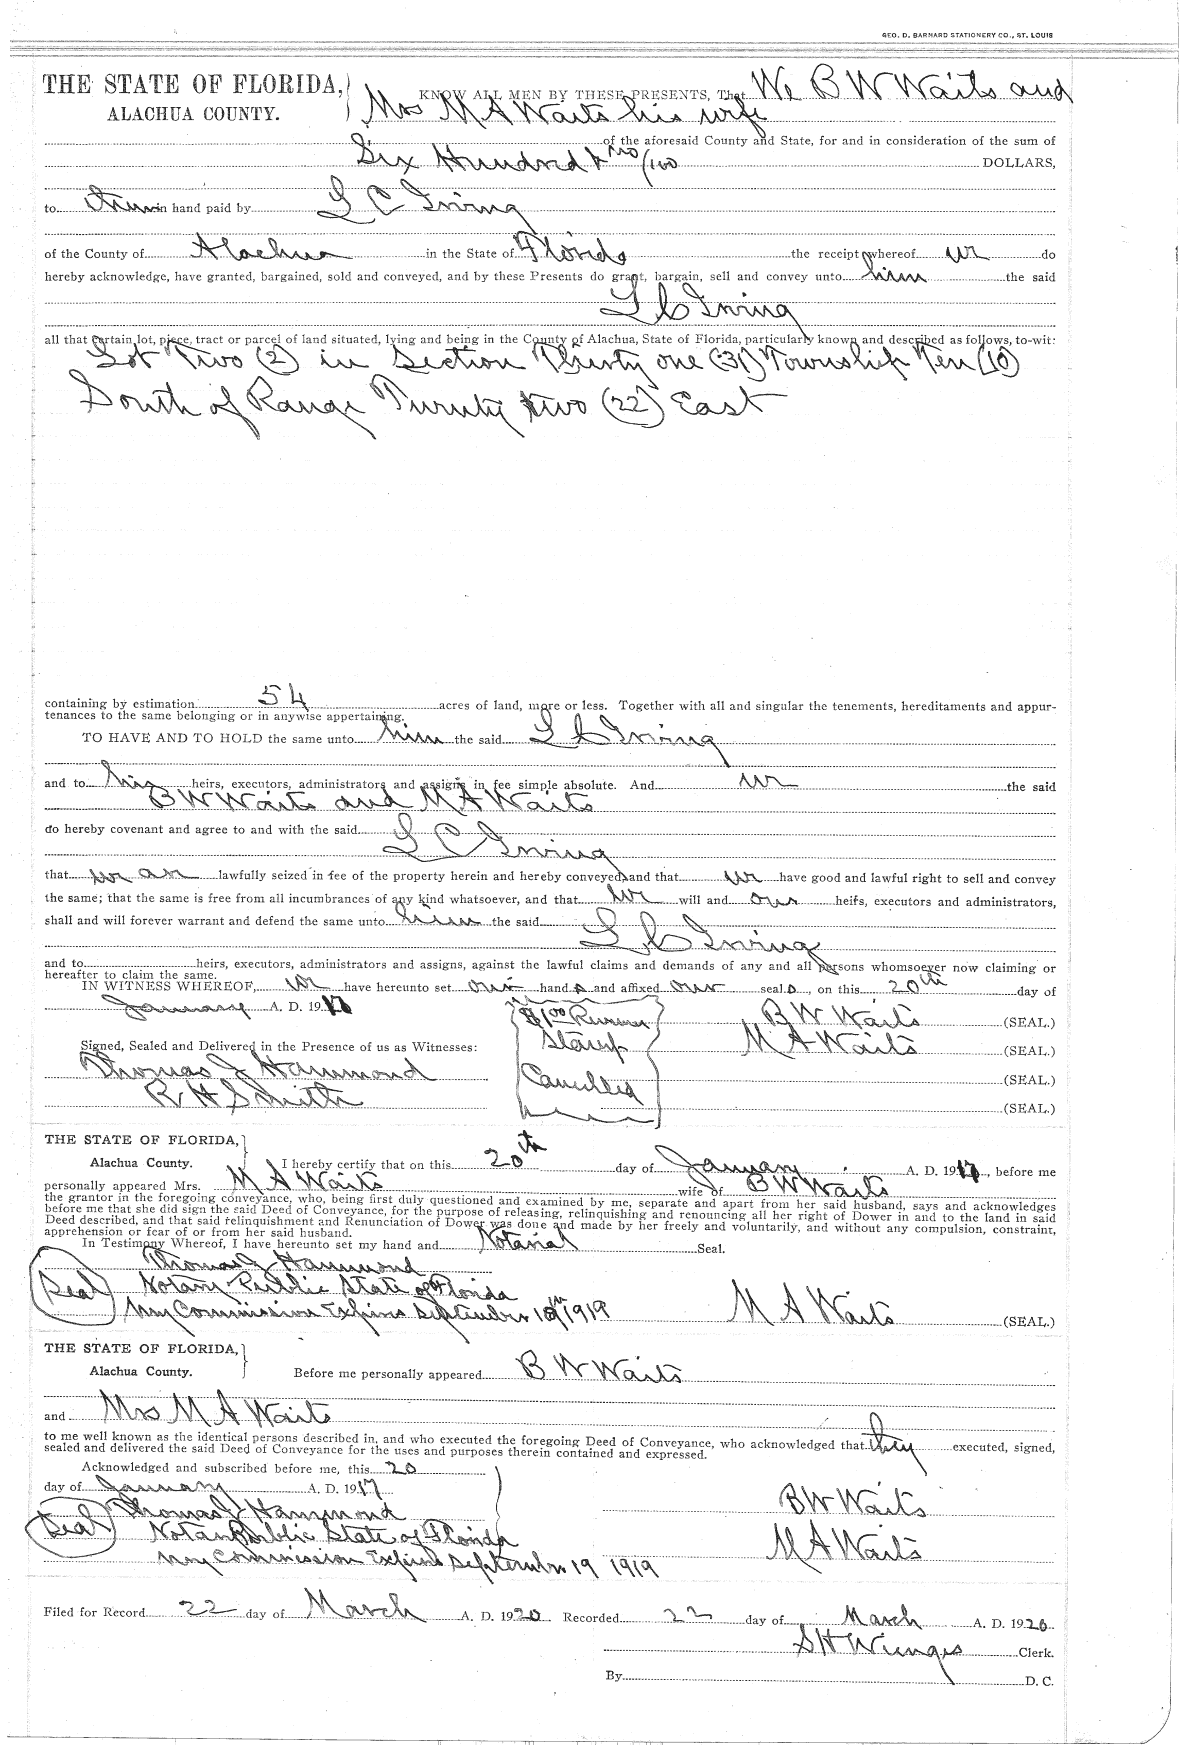 GEO. D. BARNARD STATIONERY CO., ST. LOUIS
THE STATE OF FLORIDA,
ALACHUA COUNTY.
KNOW ALL MEN BY THESE PRESENTS, That We B W Waits and
Mrs M A Waits his wife
of the aforesaid County and State, for and in consideration of the sum of
Six Hundred & no/100 DOLLARS,
to them in hand paid by L C Irving
of the County of Alachua in the State of Florida the receipt whereof we do
hereby acknowledge, have granted, bargained, sold and conveyed, and by these Presents do grant, bargain, sell and convey unto him the said
L C Irving
all that certain lot, piece, tract or parcel of land situated, lying and being in the County of Alachua, State of Florida, particularly known and described as follows, to-wit:
Lot Two (2) in Section Thirty one (31) Township Ten (10)
South of Range Twenty two (22) East
containing by estimation 54 acres of land, more or less. Together with all and singular the tenements, hereditaments and appur-
tenances to the same belonging or in anywise appertaining.
TO HAVE AND TO HOLD the same unto him the said L C Irving
and to his heirs, executors, administrators and assigns in fee simple absolute. And we the said
B W Waits and M A Waits
do hereby covenant and agree to and with the said
L C Irving
that we are lawfully seized in fee of the property herein and hereby conveyed, and that we have good and lawful right to sell and convey
the same; that the same is free from all incumbrances of any kind whatsoever, and that we will and our heirs, executors and administrators,
shall and will forever warrant and defend the same unto him the said
L C Irving
and to heirs, executors, administrators and assigns, against the lawful claims and demands of any and all persons whomsoever now claiming or
hereafter to claim the same.
IN WITNESS WHEREOF, we have hereunto set our hand s and affixed our seal s, on this 20th day of
January A. D. 19
$1.00 Revenue
Stamp
Cancelled
B W Waits (SEAL.)
M A Waits (SEAL.)
(SEAL.)
(SEAL.)
Signed, Sealed and Delivered in the Presence of us as Witnesses:
Thomas J Hammond
R H Smith
THE STATE OF FLORIDA,
Alachua County.
I hereby certify that on this 20th day of January A. D. 19, before me
personally appeared Mrs. M A Waits wife of B W Waits
the grantor in the foregoing conveyance, who, being first duly questioned and examined by me, separate and apart from her said husband, says and acknowledges
before me that she did sign the said Deed of Conveyance, for the purpose of releasing, relinquishing and renouncing all her right of Dower in and to the land in said
Deed described, and that said relinquishment and Renunciation of Dower was done and made by her freely and voluntarily, and without any compulsion, constraint,
apprehension or fear of or from her said husband.
In Testimony Whereof, I have hereunto set my hand and Notarial Seal.
Thomas J Hammond
(Seal) Notary Public State of Florida
My Commission Expires September 1919
M A Waits (SEAL.)
THE STATE OF FLORIDA,
Alachua County.
Before me personally appeared B W Waits
and Mrs M A Waits
to me well known as the identical persons described in, and who executed the foregoing Deed of Conveyance, who acknowledged that they executed, signed,
sealed and delivered the said Deed of Conveyance for the uses and purposes therein contained and expressed.
Acknowledged and subscribed before me, this 20
day of January A. D. 1917
Thomas J Hammond
(Seal) Notary Public State of Florida
My Commission Expires September 19 1919
B W Waits
M A Waits
Filed for Record 22 day of March A. D. 1920 Recorded 22 day of March A. D. 1920
S H Wienges Clerk.
By D. C.